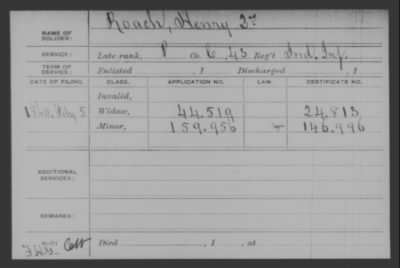 NAME OF SOLDIER: Roach, Henry 2d
SERVICE: Late rank, P Co. C, 43 Reg't Ind. Inf.
TERM OF SERVICE: Enlisted , 1 Discharged , 1
DATE OF FILING. CLASS. APPLICATION NO. LAW. CERTIFICATE NO.
Invalid,
5 Widow, 44.519 24.813
Minor, 159.956 146.996
ADDITIONAL SERVICES:
REMARKS:
Died , 1 , at